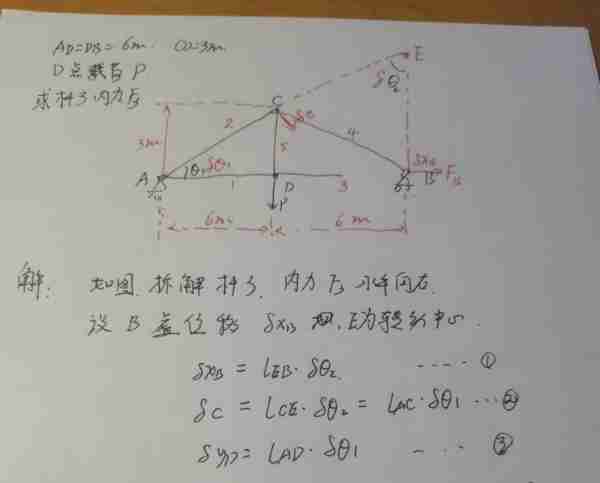 AD=DB=6m. CD=3m
D点载荷P
求杆3内力F3
E
δθ2
C
δθ
3m
2
5
4
A
θ1
δθ1
1
D
3
δxB
B
P
6m
6m
解: 如图. 拆解杆3. 内力F3水平向右.
设B虚位移δxB E为转动中心.
δxB = LEB·δθ2 ---- ①
δC = LCE·δθ2 = LAC·δθ1 ---②
δyD = LAD·δθ1 --- ③